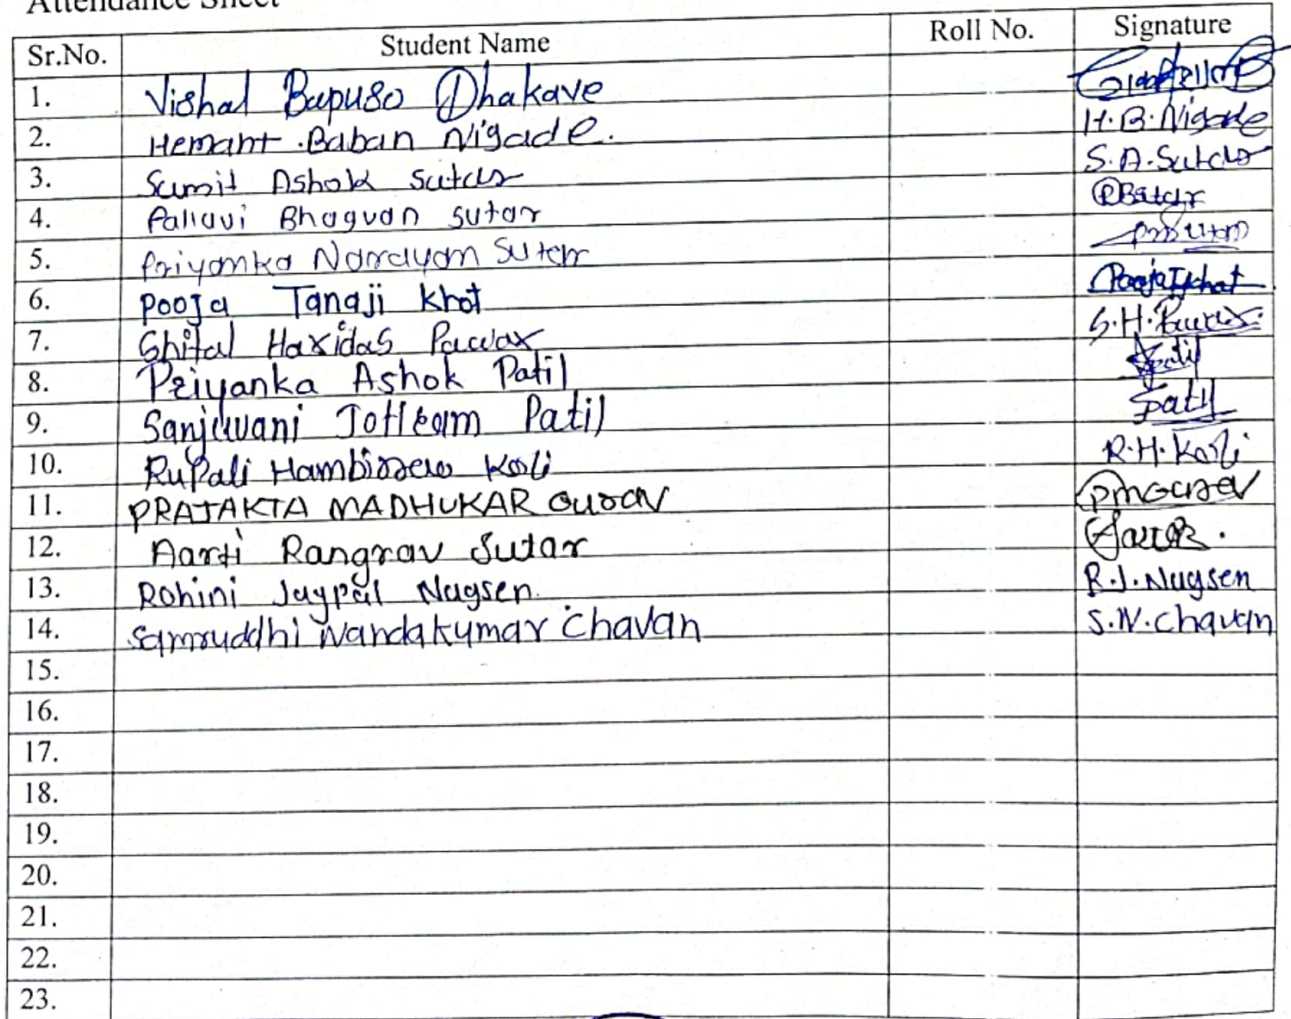 Attendance Sheet
Sr.No. Student Name Roll No. Signature
1. Vishal Bapuso Dhakave
2. Hemant .Baban Nigade. H.B.Nigade
3. Sumit Ashok Sutar S.A.Sutar
4. Pallavi Bhagvan Sutar PBSutar
5. Priyanka Narayan Sutar
6. Pooja Tanaji Khot PoojaTKhot
7. Shital Haridas Pawar S.H.Pawar.
8. Priyanka Ashok Patil Patil
9. Sanjivani Jotiram Patil Patil
10. Rupali Hambirrao Koli R.H.Koli
11. PRAJAKTA MADHUKAR Gurav PMGurav
12. Aarti Rangrav Sutar
13. Rohini Jaypal Nagsen. R.J.Nagsen
14. Samruddhi Nandakumar Chavan S.N.Chavan
15.
16.
17.
18.
19.
20.
21.
22.
23.